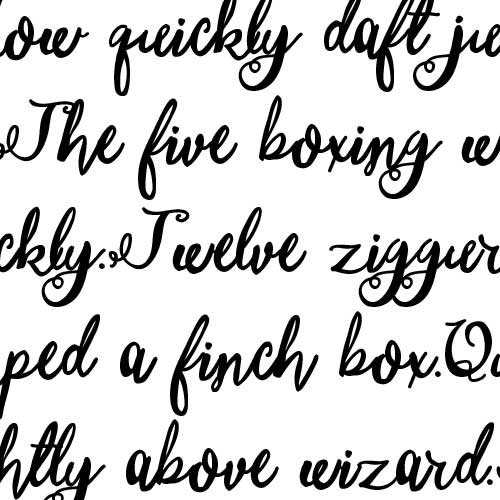 how quickly daft ju
The five boxing w
ckly. Twelve ziggur
ped a finch box. Qu
htly above wizard.